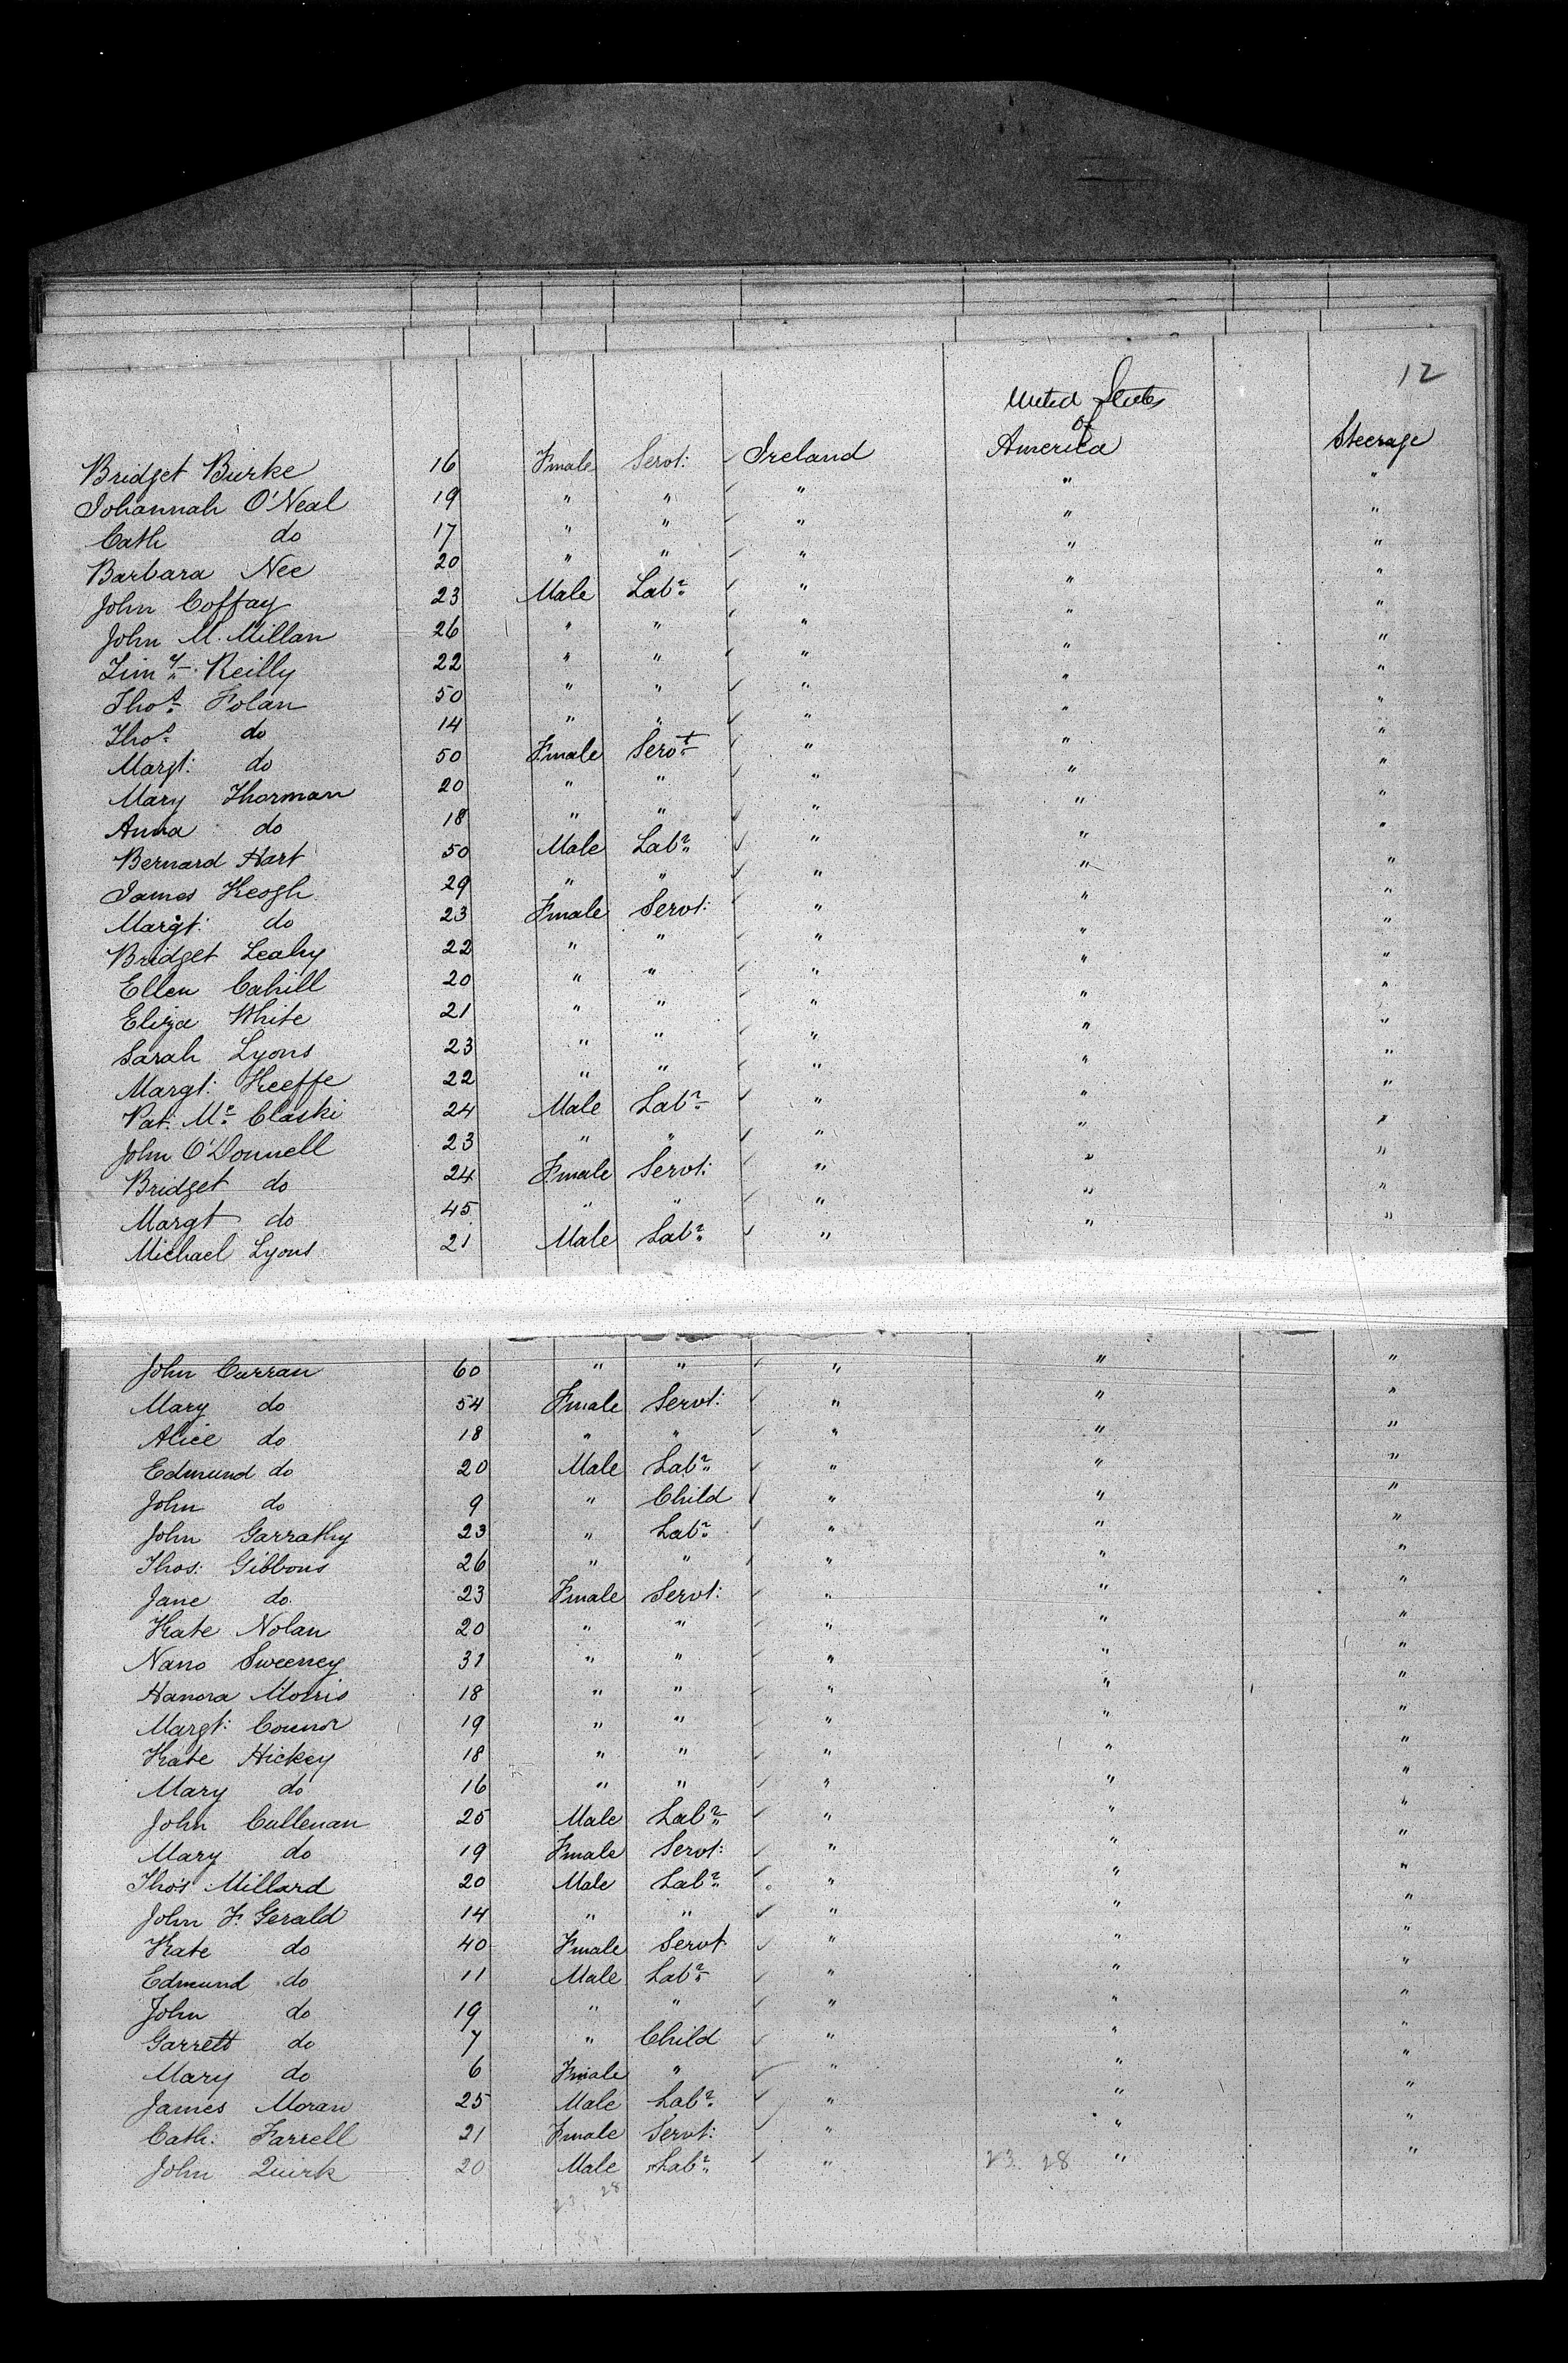 12
United States
of
Bridget Burke 16 Fmale Servt: Ireland America Steerage
Johannah O'Neal 19 " " " " "
Cath do 17 " " " " "
Barbara Nee 20 " " " " "
John Coffay 23 Male Labr " " "
John M. Millan 26 " " " " "
Timy. Reilly 22 " " " " "
Thos Folan 50 " " " " "
Thos do 14 " " " " "
Margt: do 50 Fmale Servt " " "
Mary Thorman 20 " " " " "
Anna do 18 " " " " "
Bernard Hart 50 Male Labr " " "
James Keogh 29 " " " " "
Margt: do 23 Fmale Servt: " " "
Bridget Leahy 22 " " " " "
Ellen Cahill 20 " " " " "
Eliza White 21 " " " " "
Sarah Lyons 23 " " " " "
Margt: Keeffe 22 " " " " "
Pat. Mc Claski 24 Male Labr " " "
John O'Donnell 23 " " " " "
Bridget do 24 Fmale Servt: " " "
Margt do 45 " " " " "
Michael Lyons 21 Male Labr " " "
John Curran 60 " " " " "
Mary do 54 Fmale Servt: " " "
Alice do 18 " " " " "
Edmund do 20 Male Labr " " "
John do 9 " Child " " "
John Garrathy 23 " Labr " " "
Thos: Gibbons 26 " " " " "
Jane do. 23 Fmale Servt: " " "
Kate Nolan 20 " " " " "
Nano Sweeney 31 " " " " "
Hanora Morris 18 " " " " "
Margt: Connor 19 " " " " "
Kate Hickey 18 " " " " "
Mary do 16 " " " " "
John Cullenan 25 Male Labr " " "
Mary do 19 Fmale Servt: " " "
Thos Millard 20 Male Labr " " "
John F. Gerald 14 " " " " "
Kate do 40 Fmale Servt " " "
Edmund do 11 Male Labr " " "
John do 19 " " " " "
Garrett do 7 " Child " " "
Mary do 6 Fmale " " " "
James Moran 25 Male Labr " " "
Cath: Farrell 21 Fmale Servt: " " "
John Quirk 20 Male Labr " 23. 28 " "
23. 28